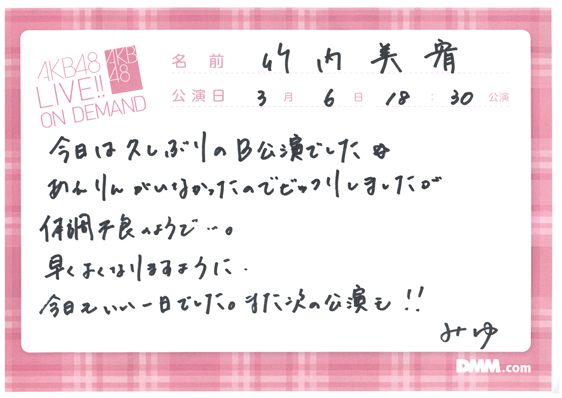 AKB48
LIVE!!
ON DEMAND
AKB
48
名前 竹内美宥
公演日 3月6日 18:30公演
今日は久しぶりのB公演でした
あんりんがいなかったのでビックリしましたが
体調不良のようで…。
早くよくなりますように.
今日もいい一日でした。また次の公演も!!
みゆ
DMM.com